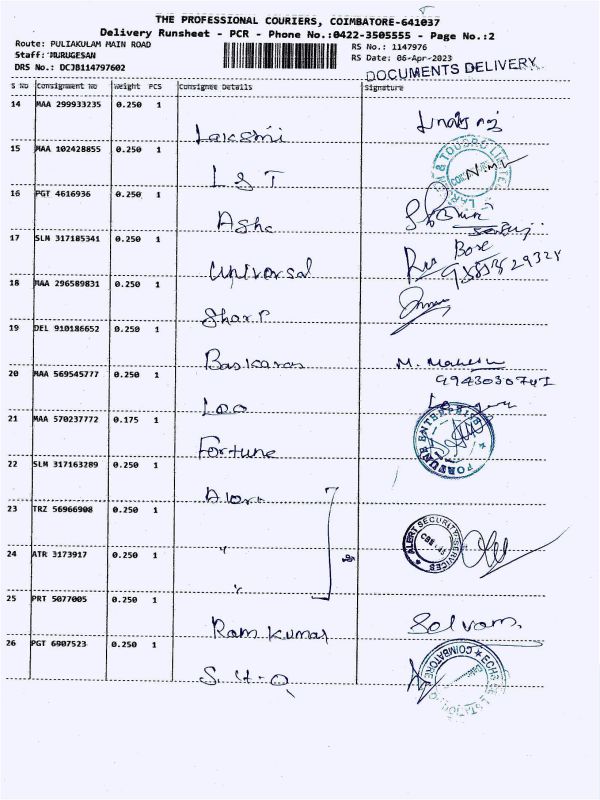 THE PROFESSIONAL COURIERS, COIMBATORE-641037
Delivery Runsheet - PCR - Phone No.:0422-3505555 - Page No.:2
Route: PULIAKULAM MAIN ROAD
RS No.: 1147976
Staff: MURUGESAN
RS Date: 06-Apr-2023
DRS No.: DCJB114797602
DOCUMENTS DELIVERY
S No Consignment No Weight PCS Consignee Details Signature
14 MAA 299933235 0.250 1
Lakshmi
15 MAA 102428855 0.250 1
L & T
LARSEN & TOUBRO LIMITED
16 PGT 4616936 0.250 1
Asha
17 SLM 317185341 0.250 1
Universal
Bose
18 MAA 296589831 0.250 1
Sharp
19 DEL 910186652 0.250 1
Baskaran
M. Mahesh
20 MAA 569545777 0.250 1
9943030741
Leo
21 MAA 570237772 0.175 1
Fortune
FORTUNE ENTERPRISES
22 SLM 317163289 0.250 1
Alert
23 TRZ 56966908 0.250 1
"
ALERT SECURITY SERVICES
CBE-45
24 ATR 3173917 0.250 1
"
25 PRT 5077005 0.250 1
Ram Kumar
Selvam
26 PGT 6907523 0.250 1
S.H.O
COIMBATORE